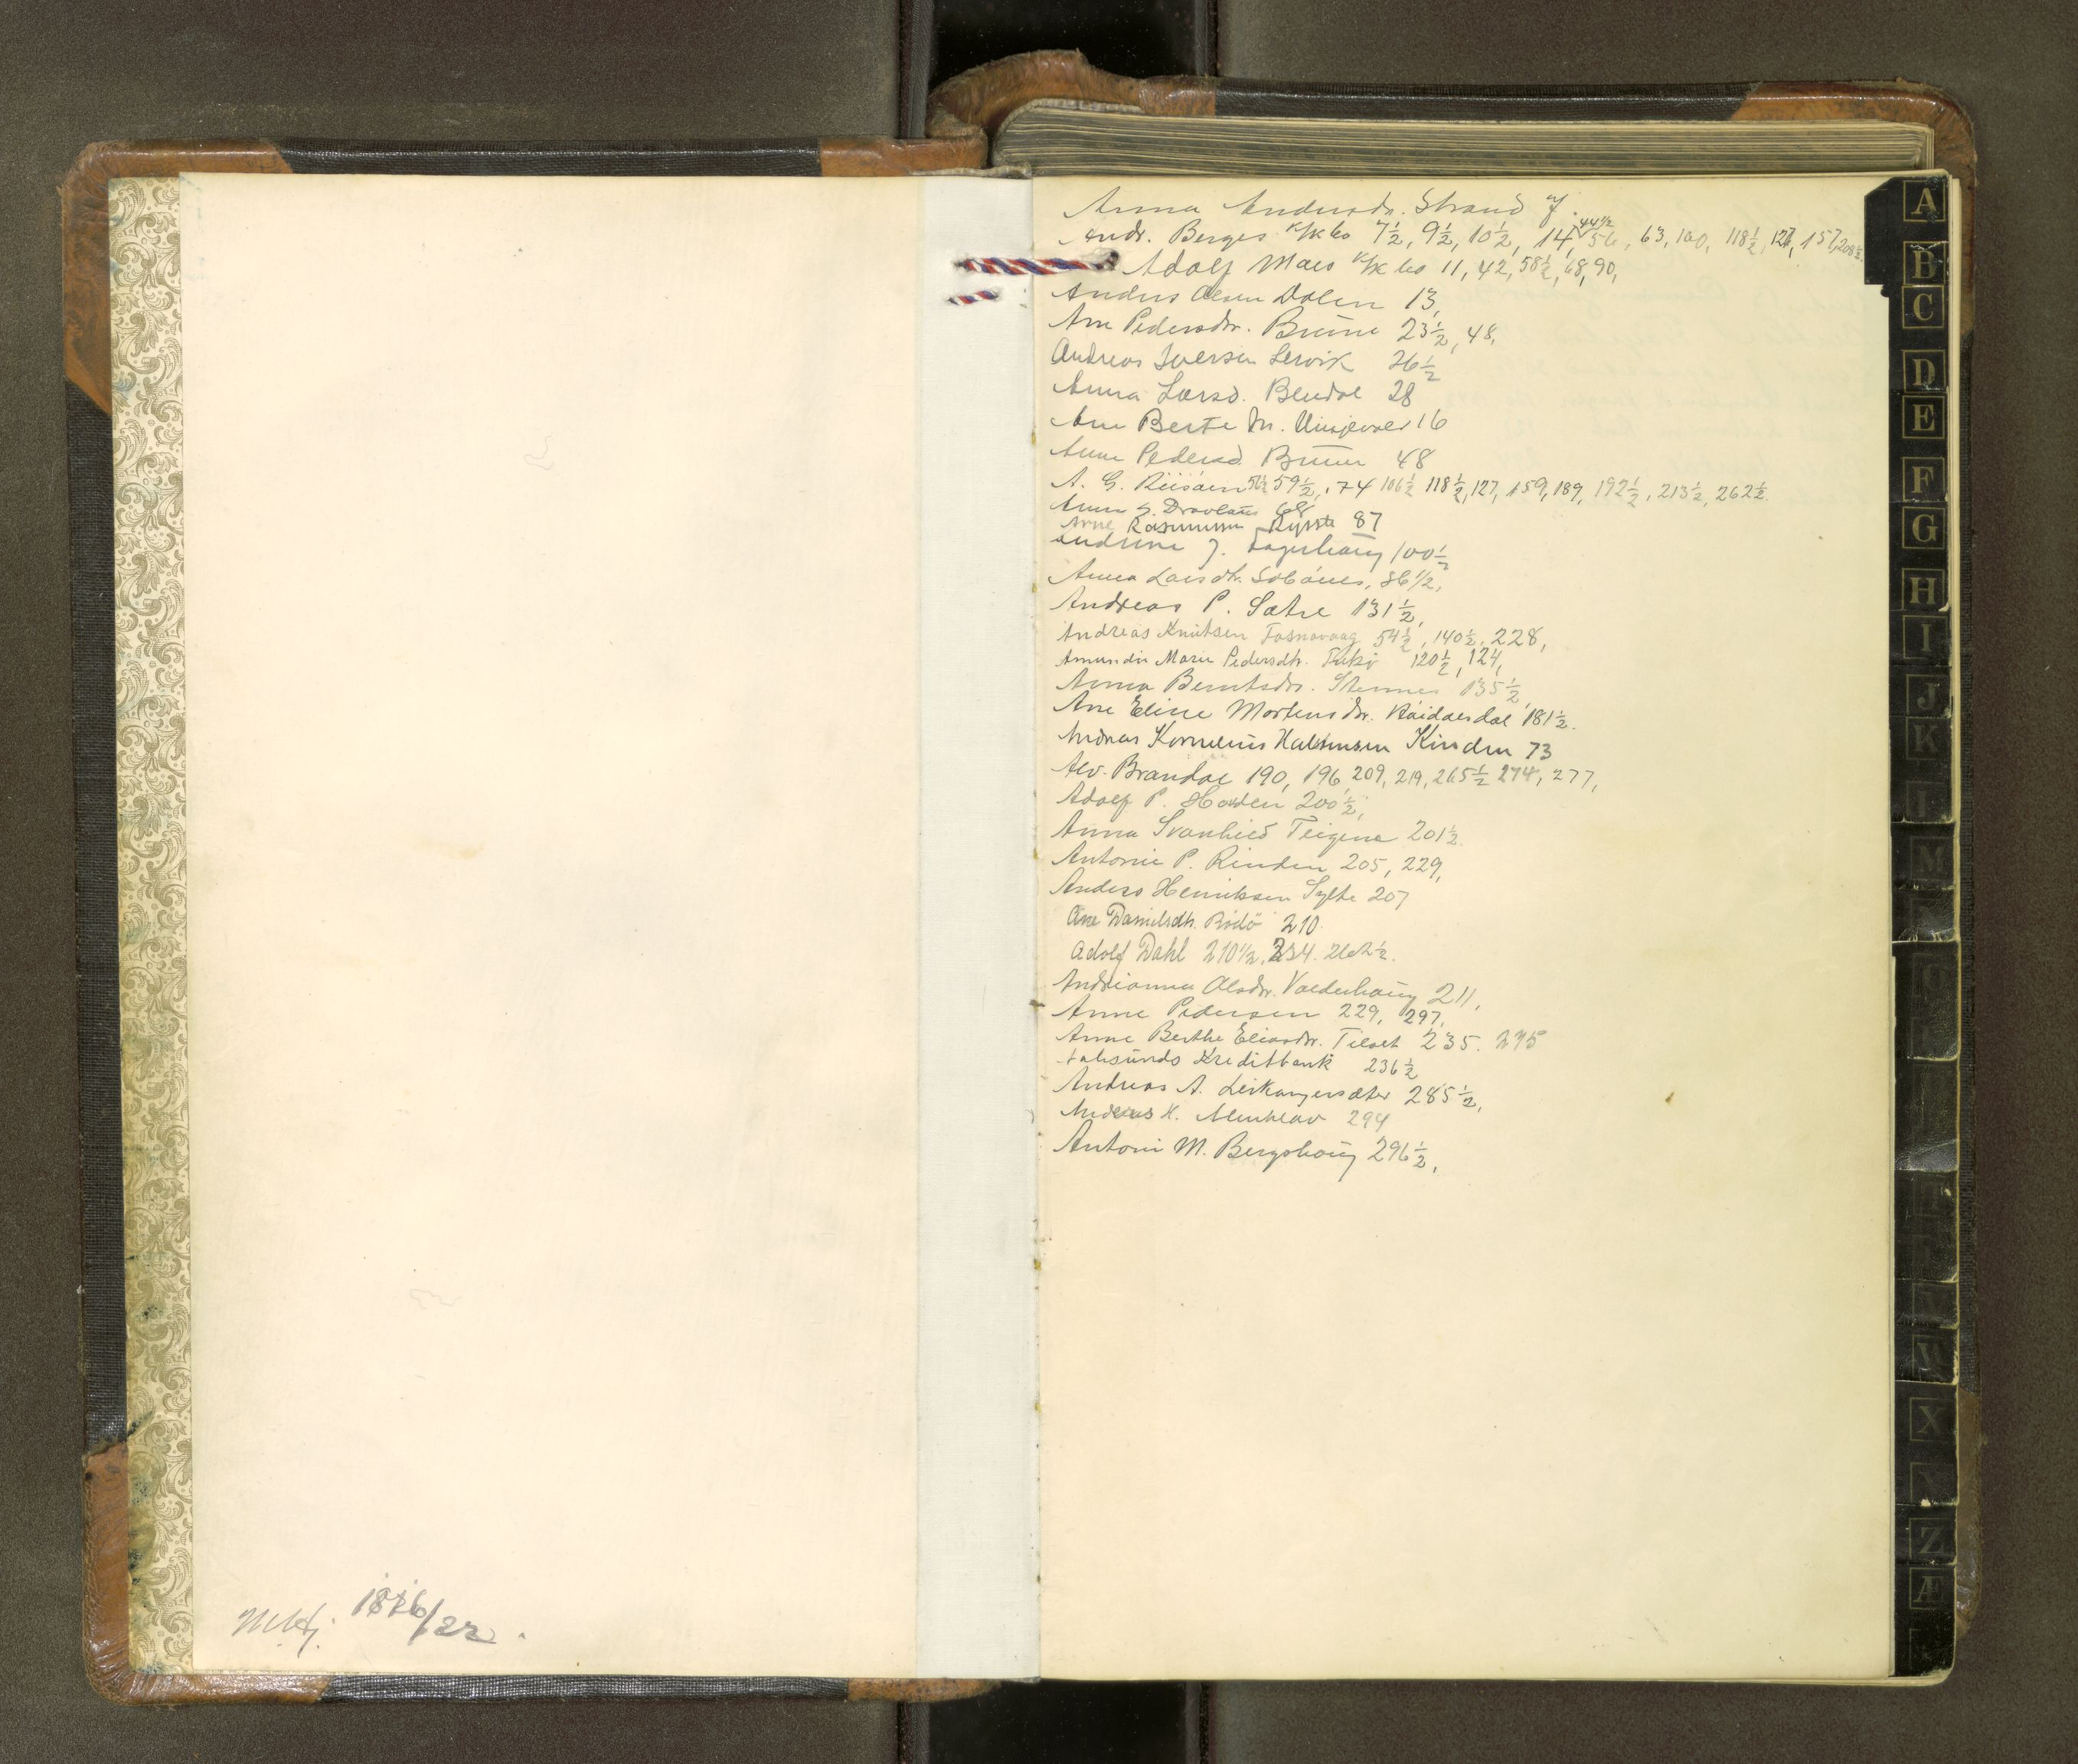 Anna Andersdr. Strand 7.
Andr. Berges K/K bo 7½, 9½, 10½, 14, 44½ 56, 63, 100, 118½, 127, 157, 208½
Adolf Maes K/K bo 11, 42, 58½, 68, 90,
Anders Olsen Dalen 13,
Ane Pedersdr. Brune 23½, 48,
Andreas Iversen Lervik 26½
Anna Larsd. Bendal 28
Ane Berte M. 16
Anne Pedersd. Brune 48
A. G. 56½ 59½, 74 106½ 118½, 127, 159, 189, 192½, 213½, 262½.
Anna S. 68
Arne Rasmussen Rypste 87
Andrine J. 100½
Anna Larsdtr. 86½,
Andreas P. Sætre 131½,
Andreas Knutsen Fosnavaag 54½, 140½, 228,
Amundin Marie Pedersdtr. 120½, 124,
Anna Berntsdr. Stennes 135½,
Ane Eline Mortensdr. 181½.
Andreas Kornelius Kinden 73
Alv. Brandal 190, 196 209, 219, 265½ 274, 277,
Adolf P. 200½,
Anna Svanhild Teigene 201½.
Antonie P. Rinden 205, 229,
Anders Henriksen Sylte 207
Ane Danielsdtr. 210.
Adolf Dahl 210½. 234. 262½.
Andrianna Olsdr. Valderhaug 211,
Anne Pedersen 229, 297,
Anne Berthe Eliasdr. Tilset 235. 275
Aalesunds Kreditbank 236½
Andreas A. Leikangersæter 285½,
Andreas K. 294
Antoni M. Bergshaug 296½,
1816/22.
A
B
C
D
E
F
G
H
I
J
K
L
M
W
X
Y
Z
Æ